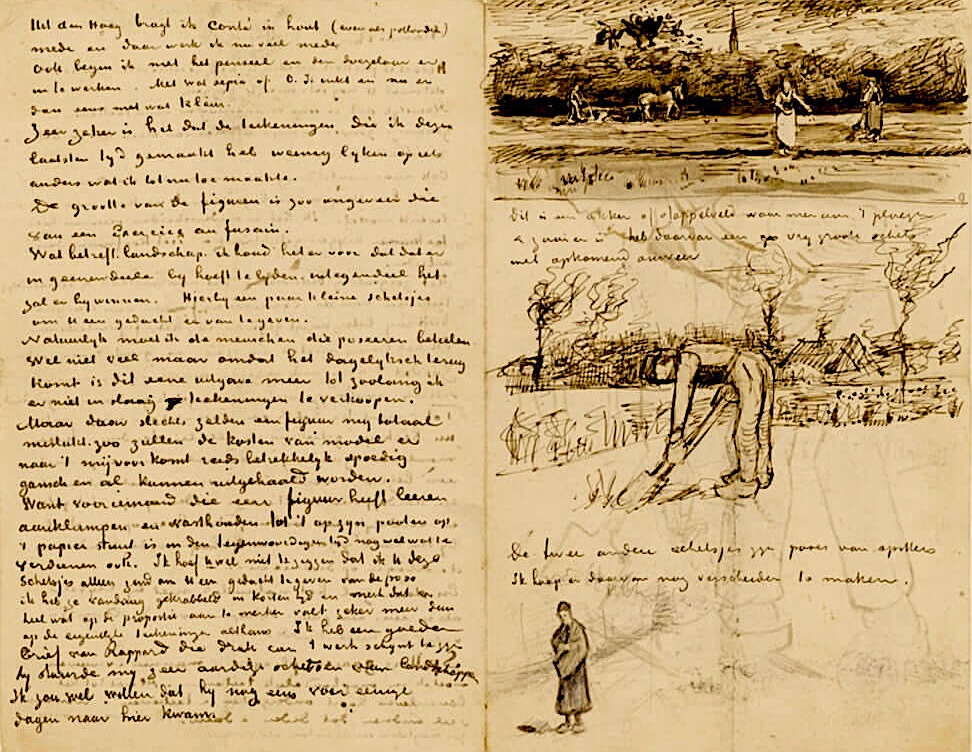 Uit den Haag bragt ik Conté in hout (evenals potlooden)
mede en daar werk ik nu veel mede
Ook begin ik met het penseel en den doezelaar er
in te werken. Met wat sepia of O. I. inkt en nu en
dan eens met wat kleur.
Zeer zeker is het dat de teekeningen die ik dezen
laatsten tyd gemaakt heb weinig lyken op iets
anders wat ik tot nu toe maakte.
De grootte van de figuren is zoo ongeveer die
van een Exercice au fusain.
Wat betreft landschap, ik houd het er voor dat dat er
in geenendeele by hoeft te lyden. integendeel het
zal er by winnen. Hierby een paar kleine schetsjes
om U een gedacht er van te geven.
Natuurlyk moet ik de menschen die poseeren betalen
Wel niet veel maar omdat het dagelyksch terug
komt is dit eene uitgave meer tot zoolang ik
er niet in slaag teekeningen te verkoopen.
Maar daar slechts zelden een figuur my totaal
mislukt zoo zullen de kosten van model er
naar 't mij voorkomt reeds betrekkelyk spoedig
gansch en al kunnen uitgehaald worden.
Want voor iemand die een figuur heeft leeren
aanklampen en vasthouden tot 't op zyn pooten op
't papier staat is in den tegenwoordigen tyd nog wel wat te
verdienen ook. Ik hoef U wel niet te zeggen dat ik U deze
schetsjes alleen zend om U een gedacht te geven van de pose
ik heb ze vandaag gekrabbeld in korten tyd en merk dat er
heel wat op de proportie aan te merken valt zeker meer dan
op de eigentlyke teekeningen althans. Ik heb een goeden
brief van Rappard die druk aan 't werk schynt te zyn
hy stuurde my zeer aardige schetsen van landschappen
Ik zou wel willen dat hy nog eens voor eenige
dagen naar hier kwam.
Dit is een akker of stoppelveld waar men aan 't ploegen
& zaaien is heb daarvan een vry groote schets
met opkomend onweer
De twee andere schetsjes zyn poses van spitters
Ik hoop er daarvan nog verscheiden te maken.